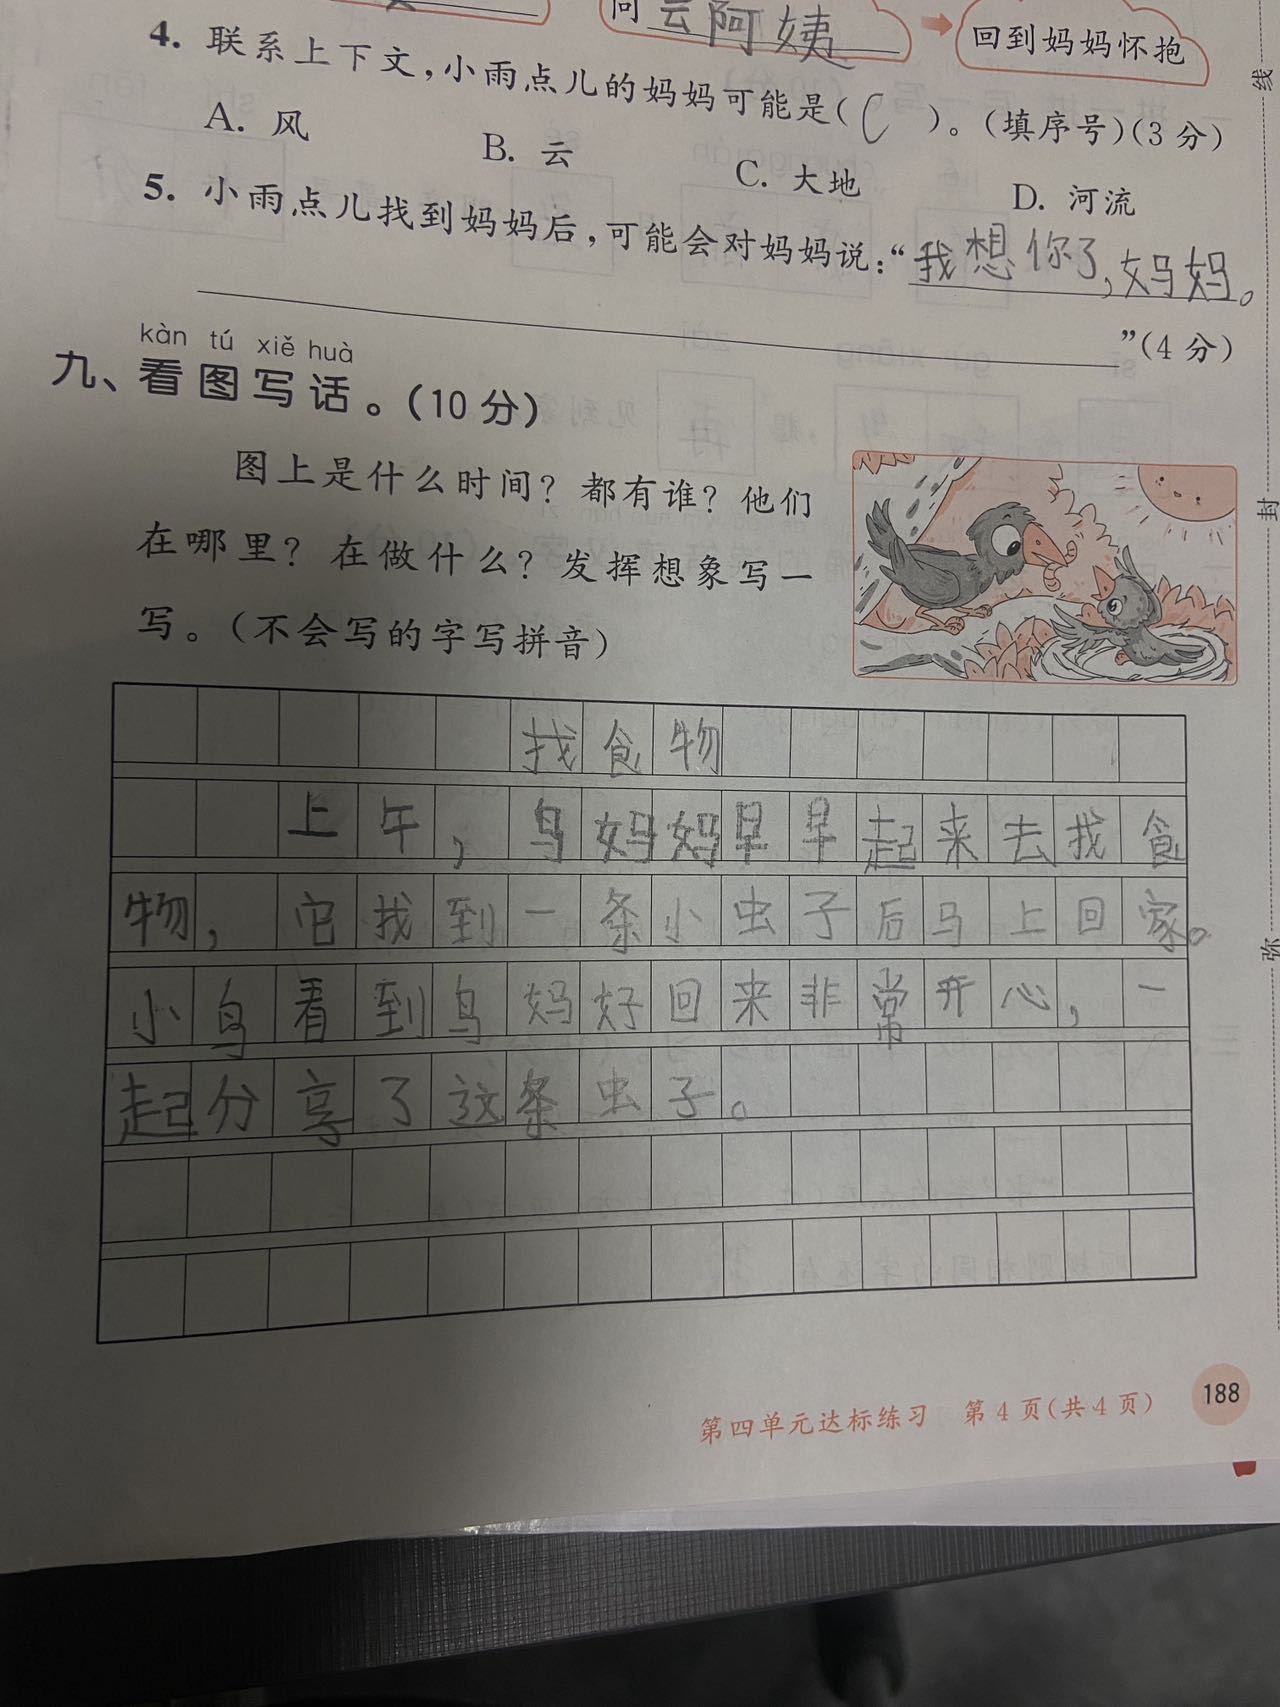 问云阿姨
回到妈妈怀抱
4. 联系上下文，小雨点儿的妈妈可能是（C）。（填序号）（3分）
A. 风 B. 云 C. 大地 D. 河流
5. 小雨点儿找到妈妈后，可能会对妈妈说：“我想你了，妈妈。
”（4分）
kàn tú xiě huà
九、看图写话。（10分）
图上是什么时间？都有谁？他们
在哪里？在做什么？发挥想象写一
写。（不会写的字写拼音）
找食物
上午，鸟妈妈早早起来去找食
物，它找到一条小虫子后马上回家。
小鸟看到鸟妈好回来非常开心，一
起分享了这条虫子。
第四单元达标练习 第4页（共4页） 188
线
封
弥